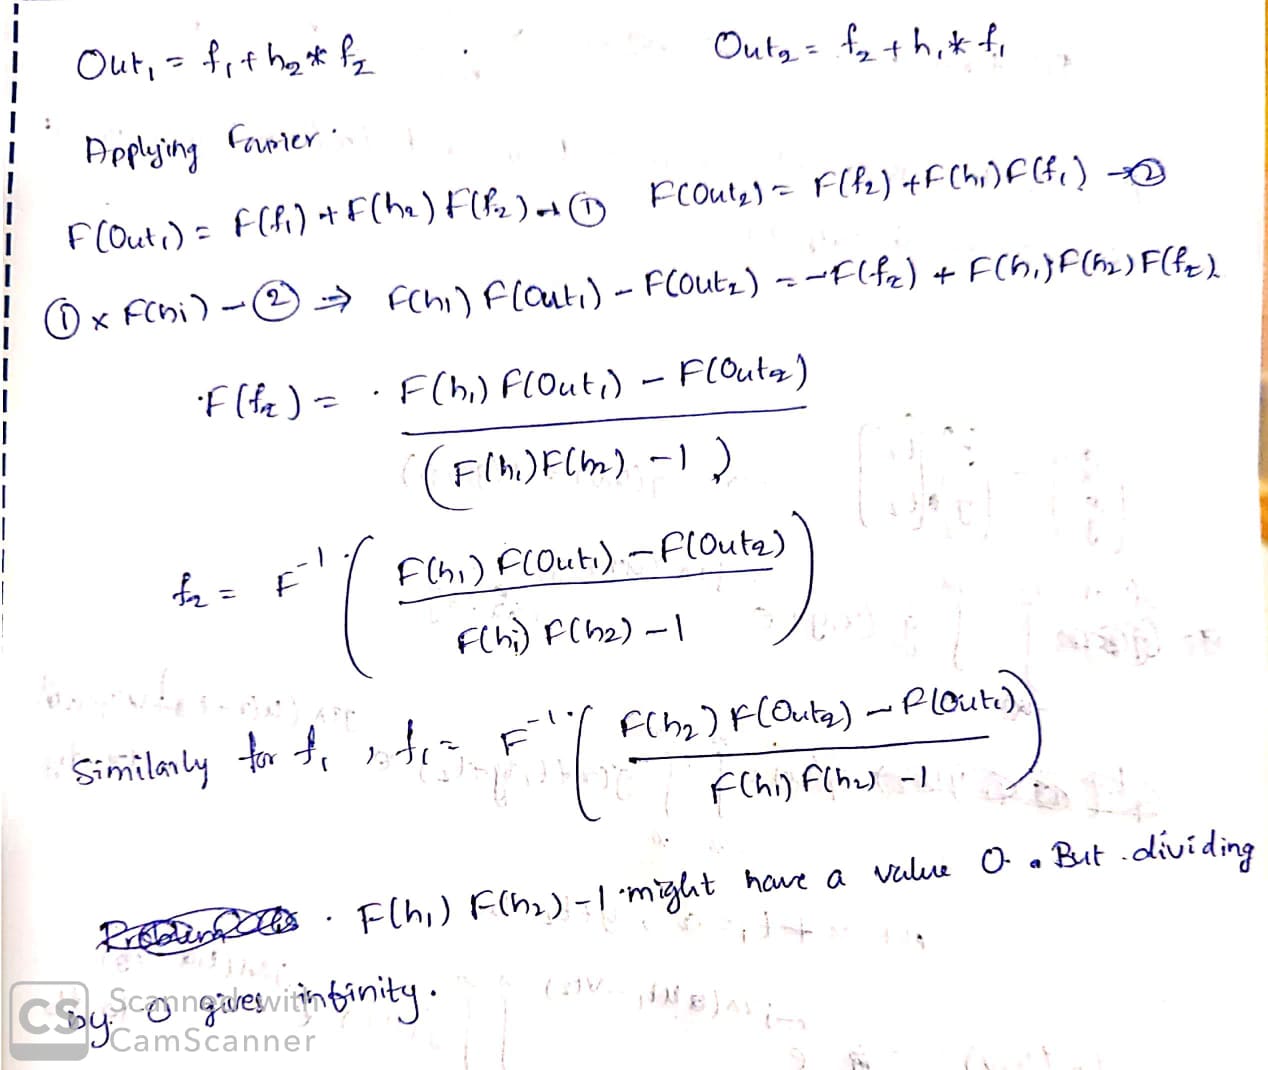 Out₁ = f₁ + h₂ * f₂ Out₂ = f₂ + h₁ * f₁
Applying Fourier.
F(Out₁) = F(f₁) + F(h₂) F(f₂) → ① F(Out₂) = F(f₂) + F(h₁) F(f₁) → ②
① × F(h₁) - ② ⇒ F(h₁) F(Out₁) - F(Out₂) = -F(f₂) + F(h₁) F(h₂) F(f₂)
F(f₂) = F(h₁) F(Out₁) - F(Out₂)
(F(h₁) F(h₂) - 1)
f₂ = F⁻¹ ( F(h₁) F(Out₁) - F(Out₂) )
F(h₁) F(h₂) - 1
Similarly for f₁, f₁ = F⁻¹ ( F(h₂) F(Out₂) - F(Out₁) )
F(h₁) F(h₂) - 1
F(h₁) F(h₂) - 1 might have a value 0. But dividing
by 0 gives infinity.
CS Scanned with
CamScanner